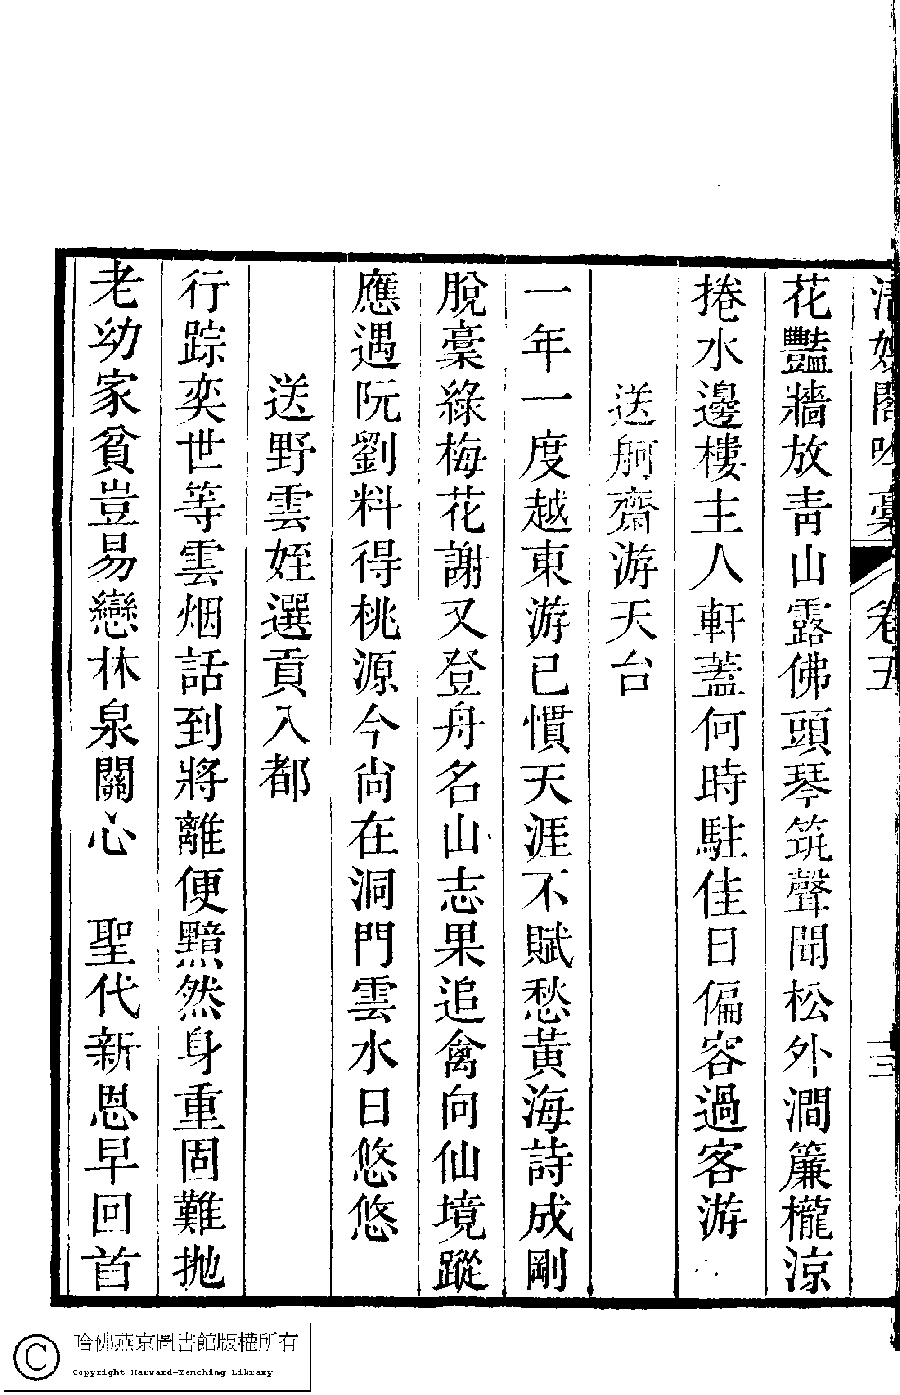 清娛閣吟藁 卷五 十三
花豔牆放青山露佛頭琴筑聲聞松外澗簾櫳涼
捲水邊樓主人軒蓋何時駐佳日偏容過客游
送舸齋游天台
一年一度越東游已慣天涯不賦愁黃海詩成剛
脫藁綠梅花謝又登舟名山志果追禽向仙境蹤
應遇阮劉料得桃源今尚在洞門雲水日悠悠
送野雲姪選貢入都
行踪奕世等雲烟話到將離便黯然身重固難拋
老幼家貧豈易戀林泉關心 聖代新恩早回首
哈佛燕京圖書館版權所有
Copyright Harvard-Yenching Library